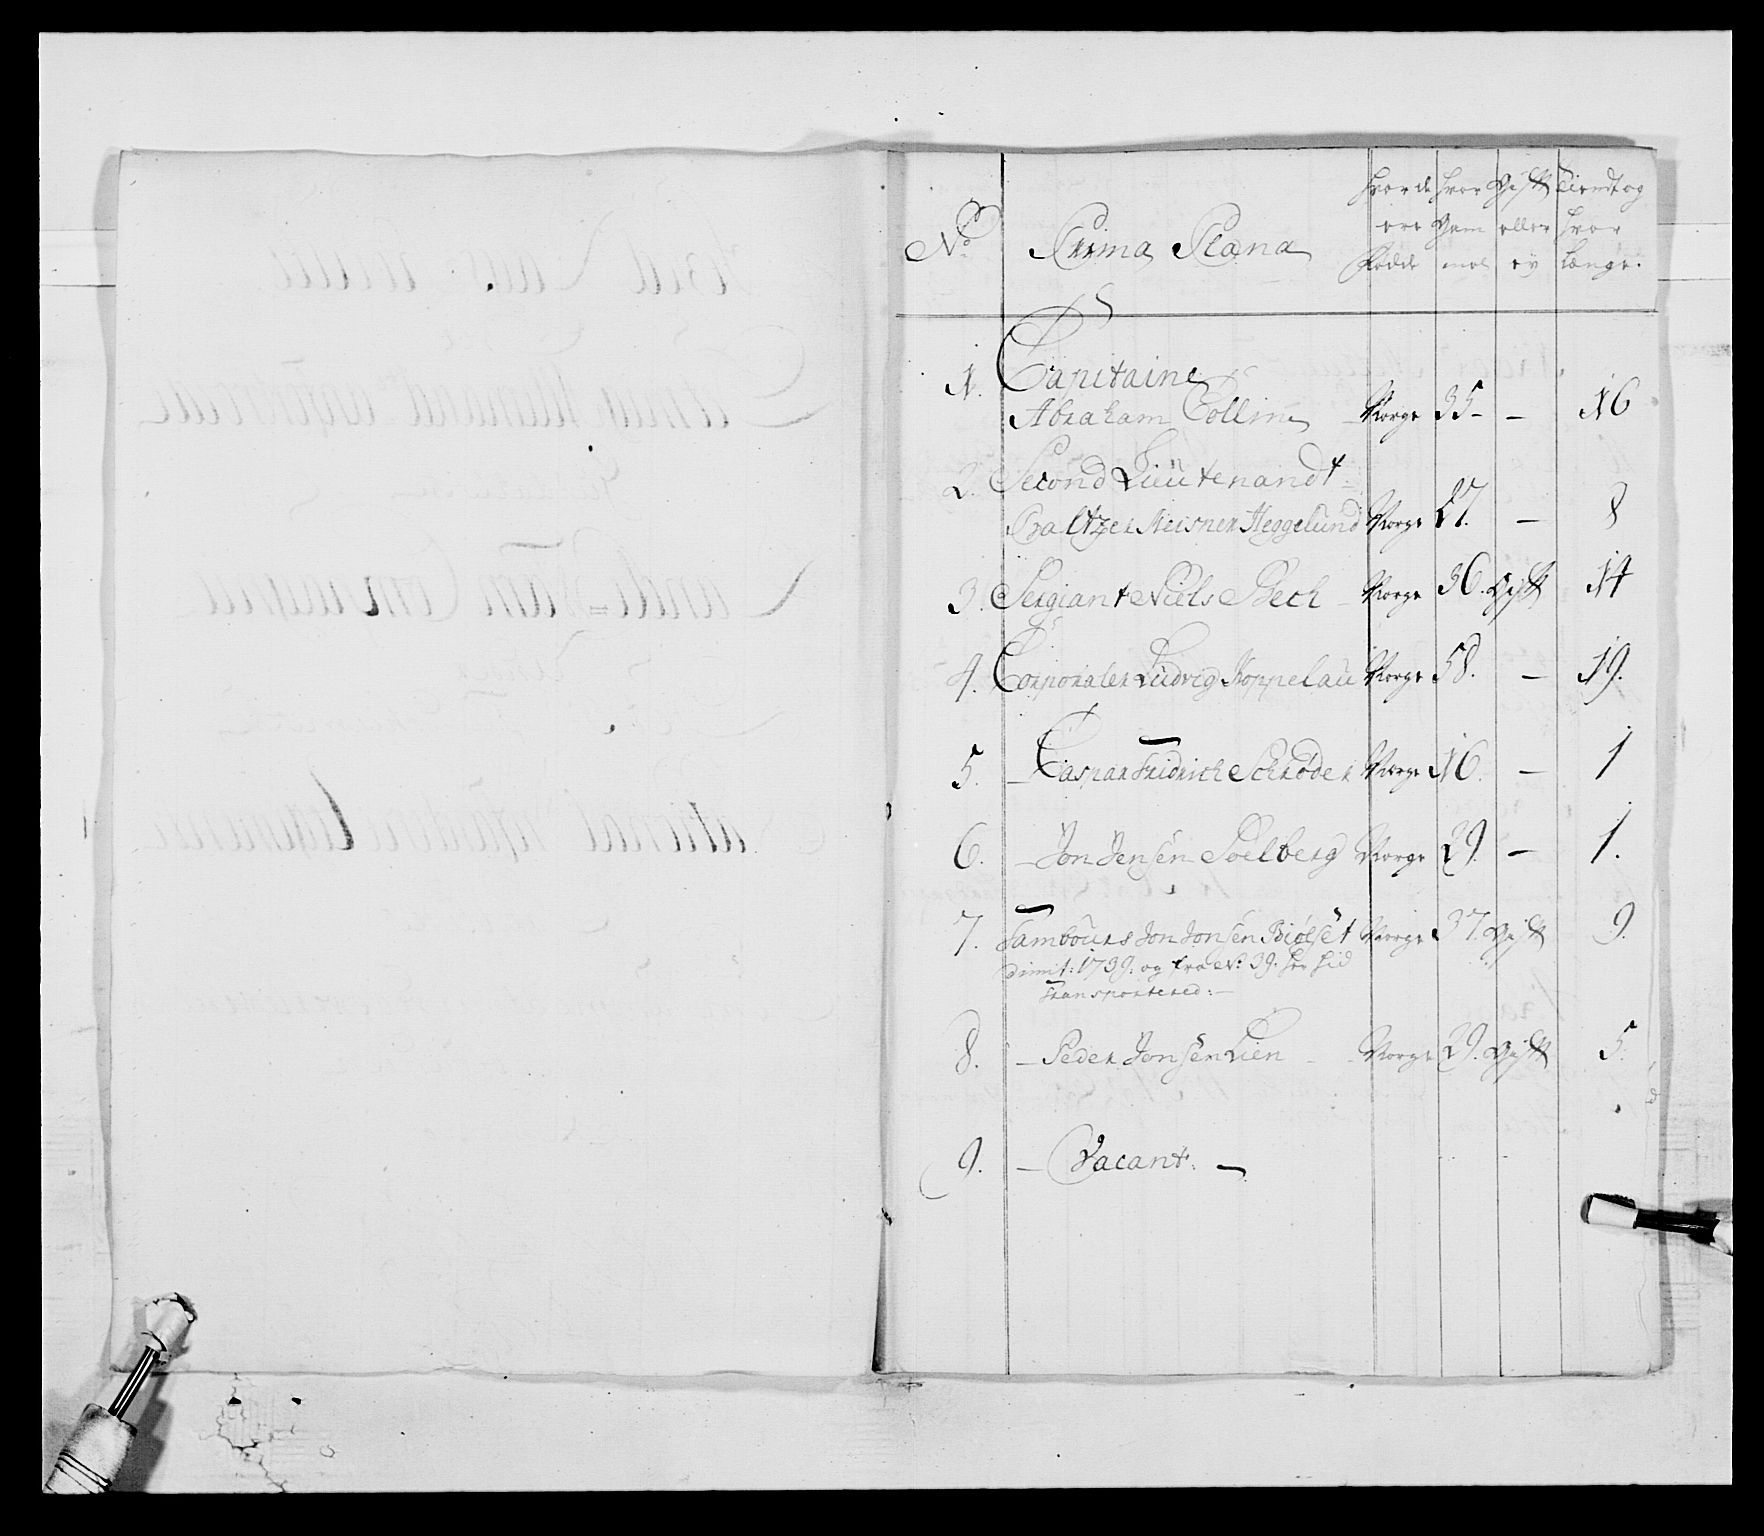 No. Prima Plana hvor de ere Fødde hvor Gam mel Gift eller ey Tiendt og hvor Længe.
1. Capitaine
Abraham Collin Norge 35 - — 16
2. Second Lieutenandt
Baltzer Meisner Heggelund Norge 27. — 8
3. Sergiant Niels Bech Norge 36. Gift 14
4. Corporaler Ludvig Koppelau Norge 58. — 19.
5. — Caspar Fridrich Schrøder Norge 16. — 1
6. — Jon Jensen Soelberg Norge 29. — 1.
7. Tambours Jon Jonsen Biølset Norge 37. Gift 9.
dimit: 1739. og fra N: 39. her hid
Transportered: —
8. — Peder Jonsen Lien — Norge 29. Gift 5.
9. — Vacant. —